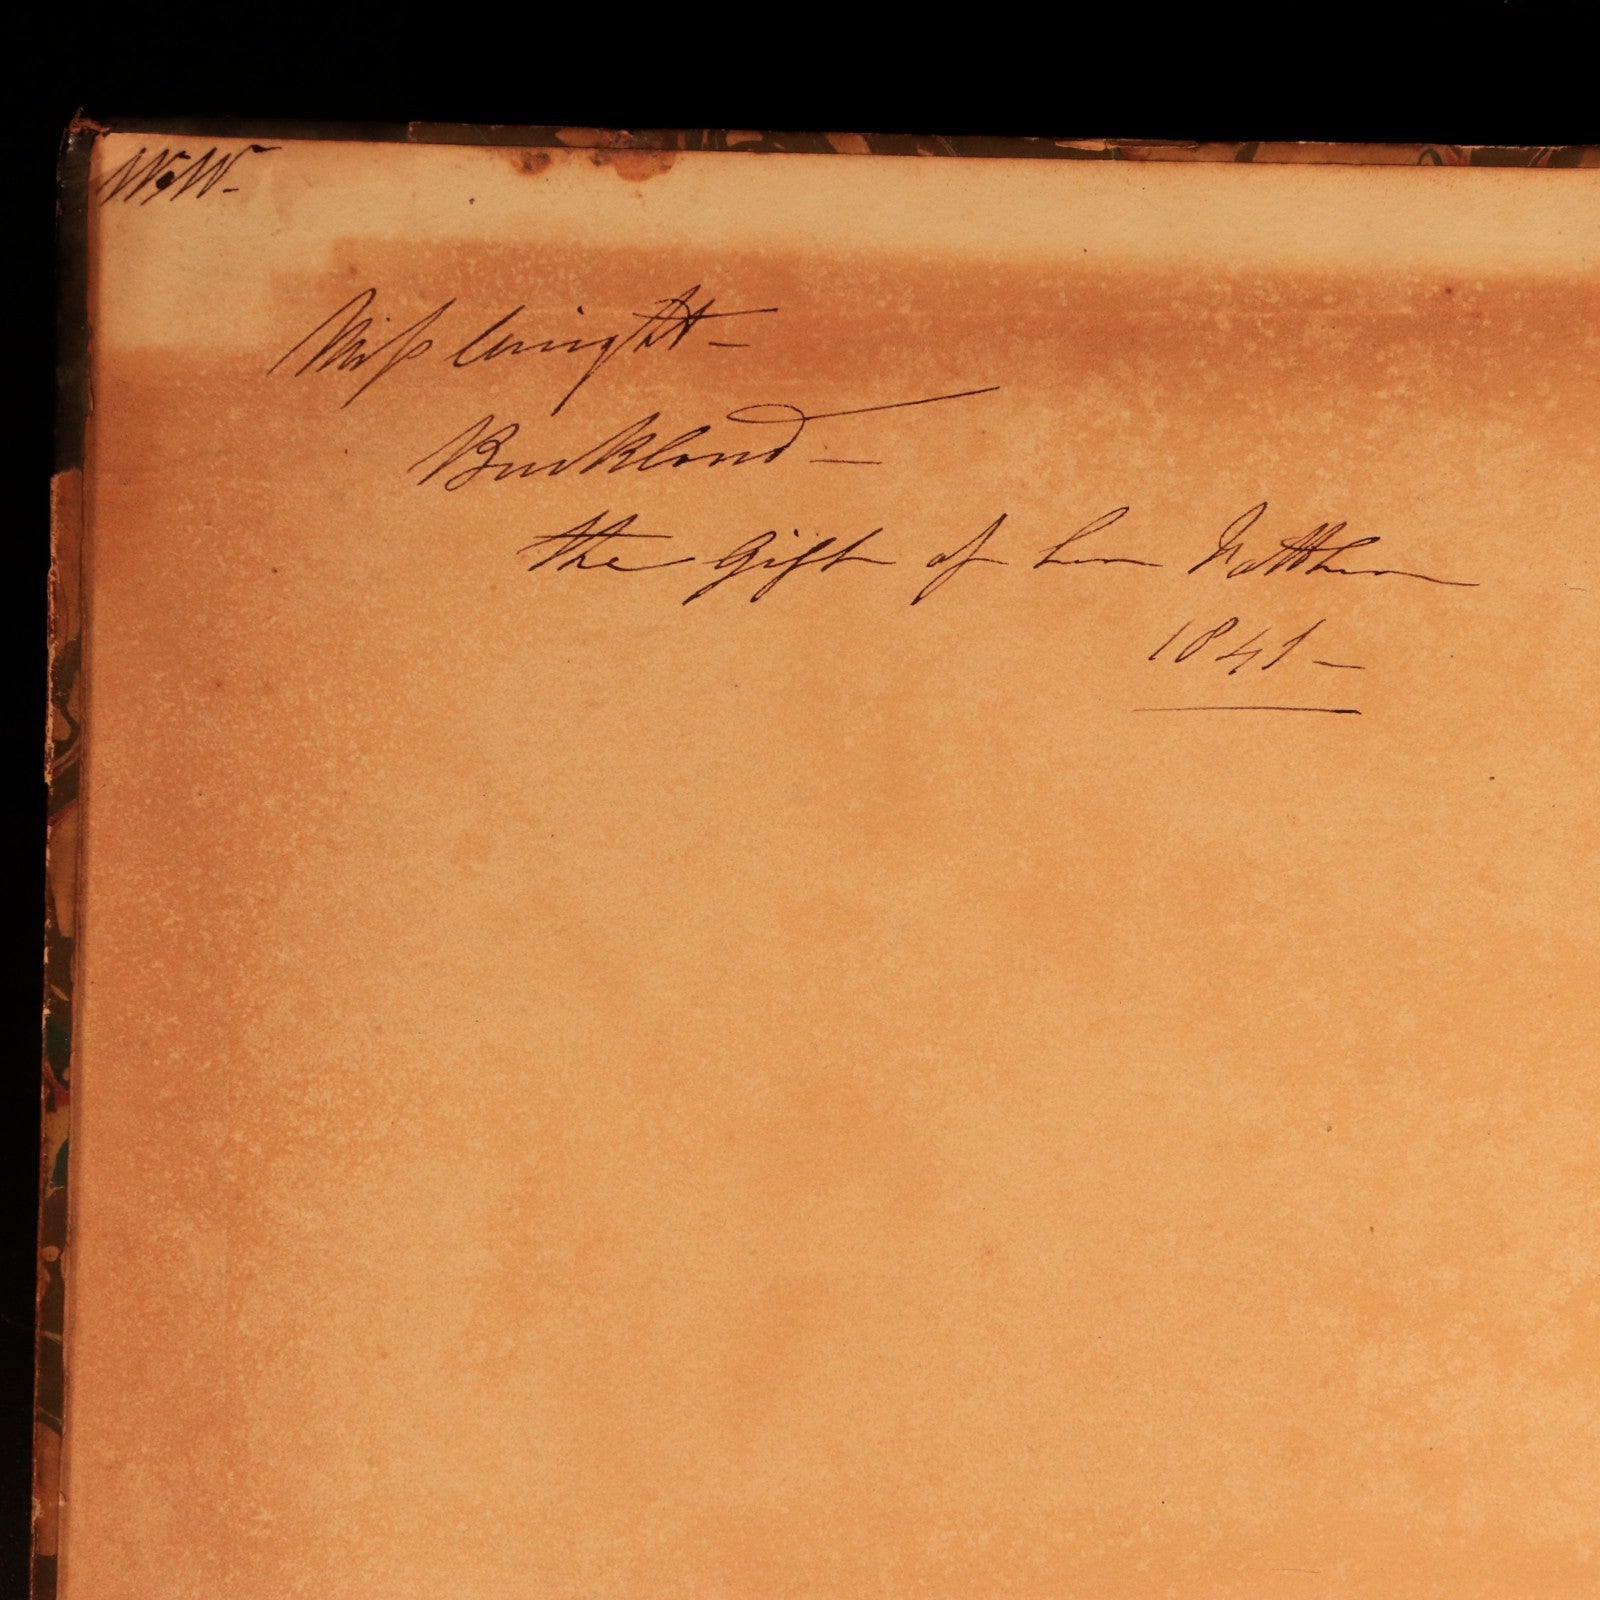 W.W.
Miſs Wright -
Buckland -
the Gift of her Father
1841 -